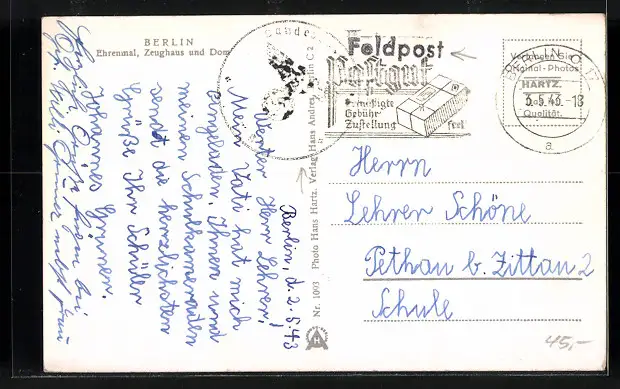 BERLIN
Ehrenmal, Zeughaus und Dom
Berlin, d. 2.5.43
Werter Herr Lehrer!
Mein Vati hat mich
eingeladen. Ihnen und
meinen Schulkameraden
sendet die herzlichsten
Grüße Ihr Schüler
Johannes Grünen.
Nr. 1093 Photo Hans Hartz. Verlag Hans Andres, Berlin C 2
Feldpost
Postgut
Ermäßigte
Gebühr
Zustellung frei
Verlangen Sie
Original-Photos
HARTZ.
Qualität.
BERLIN C
3.5.43.-18
a
Herrn
Lehrer Schöne
Pethau b. Zittau 2
Schule
45,-